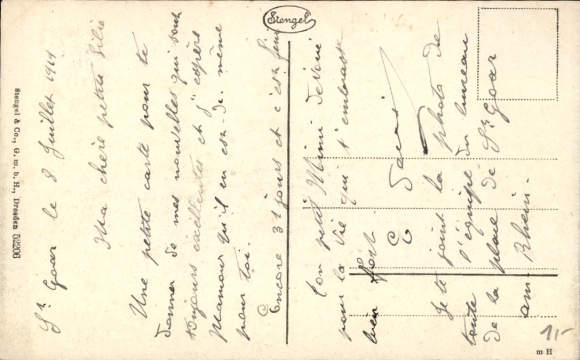 Stengel
Stengel & Co., G. m. b. H., Dresden 52206
St Goar le 8 Juillet 1919
Ma chère petite Lilie
Une petite carte pour te
donner de mes nouvelles qui sont
toujours excellentes et j'espère
qu'il en est de même
pour toi
Encore 31 jours et c'est fini
Ton petit Mimi
pour la vie qui t'embrasse
bien fort
Je te joint la photo de
toute l'équipe du bureau
de la place de St Goar
am Rhein.
1,-
m H